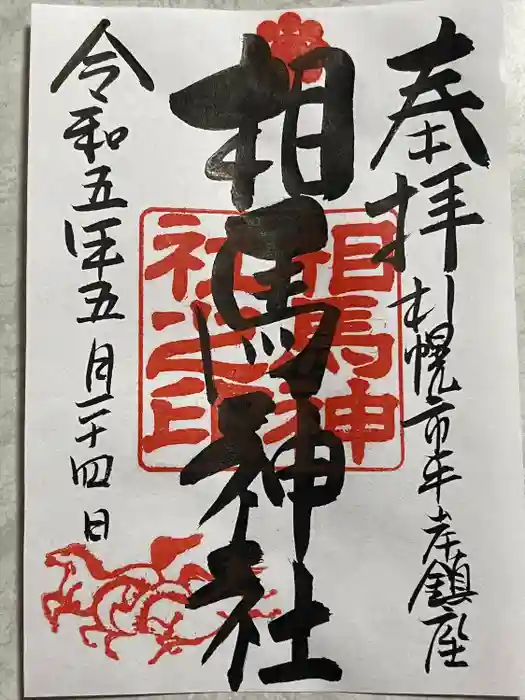 奉拝
札幌市平岸鎮座
相馬神社
相馬神社之印
令和五年五月二十四日